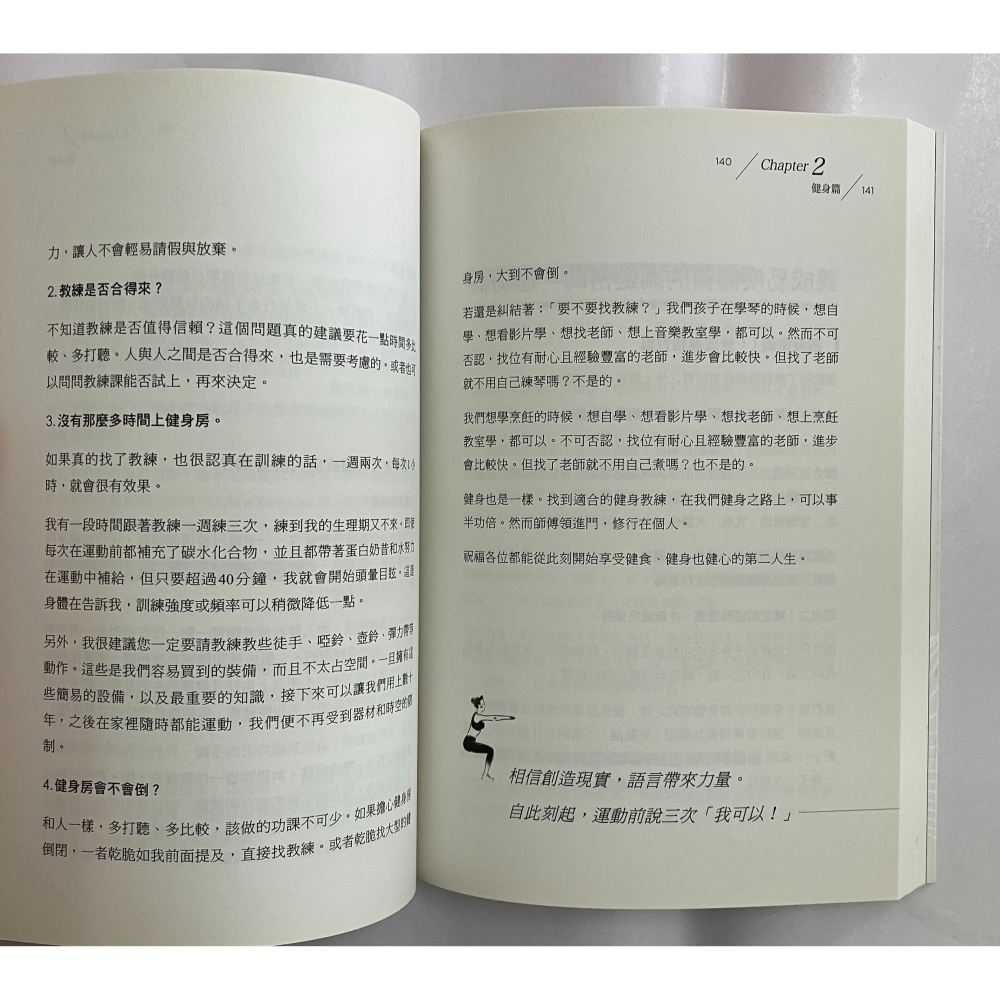 力，讓人不會輕易請假與放棄。
2.教練是否合得來？
不知道教練是否值得信賴？這個問題真的建議要花一點時間多比
較、多打聽。人與人之間是否合得來，也是需要考慮的。或者也可
以問問教練課能否試上，再來決定。
3.沒有那麼多時間上健身房。
如果真的找了教練，也很認真在訓練的話，一週兩次，每次1小
時，就會很有效果。
我有一段時間跟著教練一週練三次，練到我的生理期又不來。即使
每次在運動前都補充了碳水化合物，並且都帶著蛋白奶昔和水努力
在運動中補給，但只要超過40分鐘，我就會開始頭暈目眩。這是
身體在告訴我，訓練強度或頻率可以稍微降低一點。
另外，我很建議您一定要請教練教些徒手、啞鈴、壺鈴、彈力帶等
動作。這些是我們容易買到的裝備，而且不太占空間。一旦擁有這
些簡易的設備，以及最重要的知識，接下來可以讓我們用上數十
年，之後在家裡隨時都能運動，我們便不再受到器材和時空的限
制。
4.健身房會不會倒？
和人一樣，多打聽、多比較，該做的功課不可少。如果擔心健身房
倒閉，一者乾脆如我前面提及，直接找教練。或者乾脆找大型的健
140 / Chapter 2
健身篇 / 141
身房，大到不會倒。
若還是糾結著：「要不要找教練？」我們孩子在學琴的時候，想自
學、想看影片學、想找老師、想上音樂教室學，都可以。然而不可
否認，找位有耐心且經驗豐富的老師，進步會比較快。但找了老師
就不用自己練琴嗎？不是的。
我們想學烹飪的時候，想自學、想看影片學、想找老師、想上烹飪
教室學，都可以。不可否認，找位有耐心且經驗豐富的老師，進步
會比較快。但找了老師就不用自己煮嗎？也不是的。
健身也是一樣。找到適合的健身教練，在我們健身之路上，可以事
半功倍。然而師傅領進門，修行在個人。
祝福各位都能從此刻開始享受健食、健身也健心的第二人生。
相信創造現實，語言帶來力量。
自此刻起，運動前說三次「我可以！」